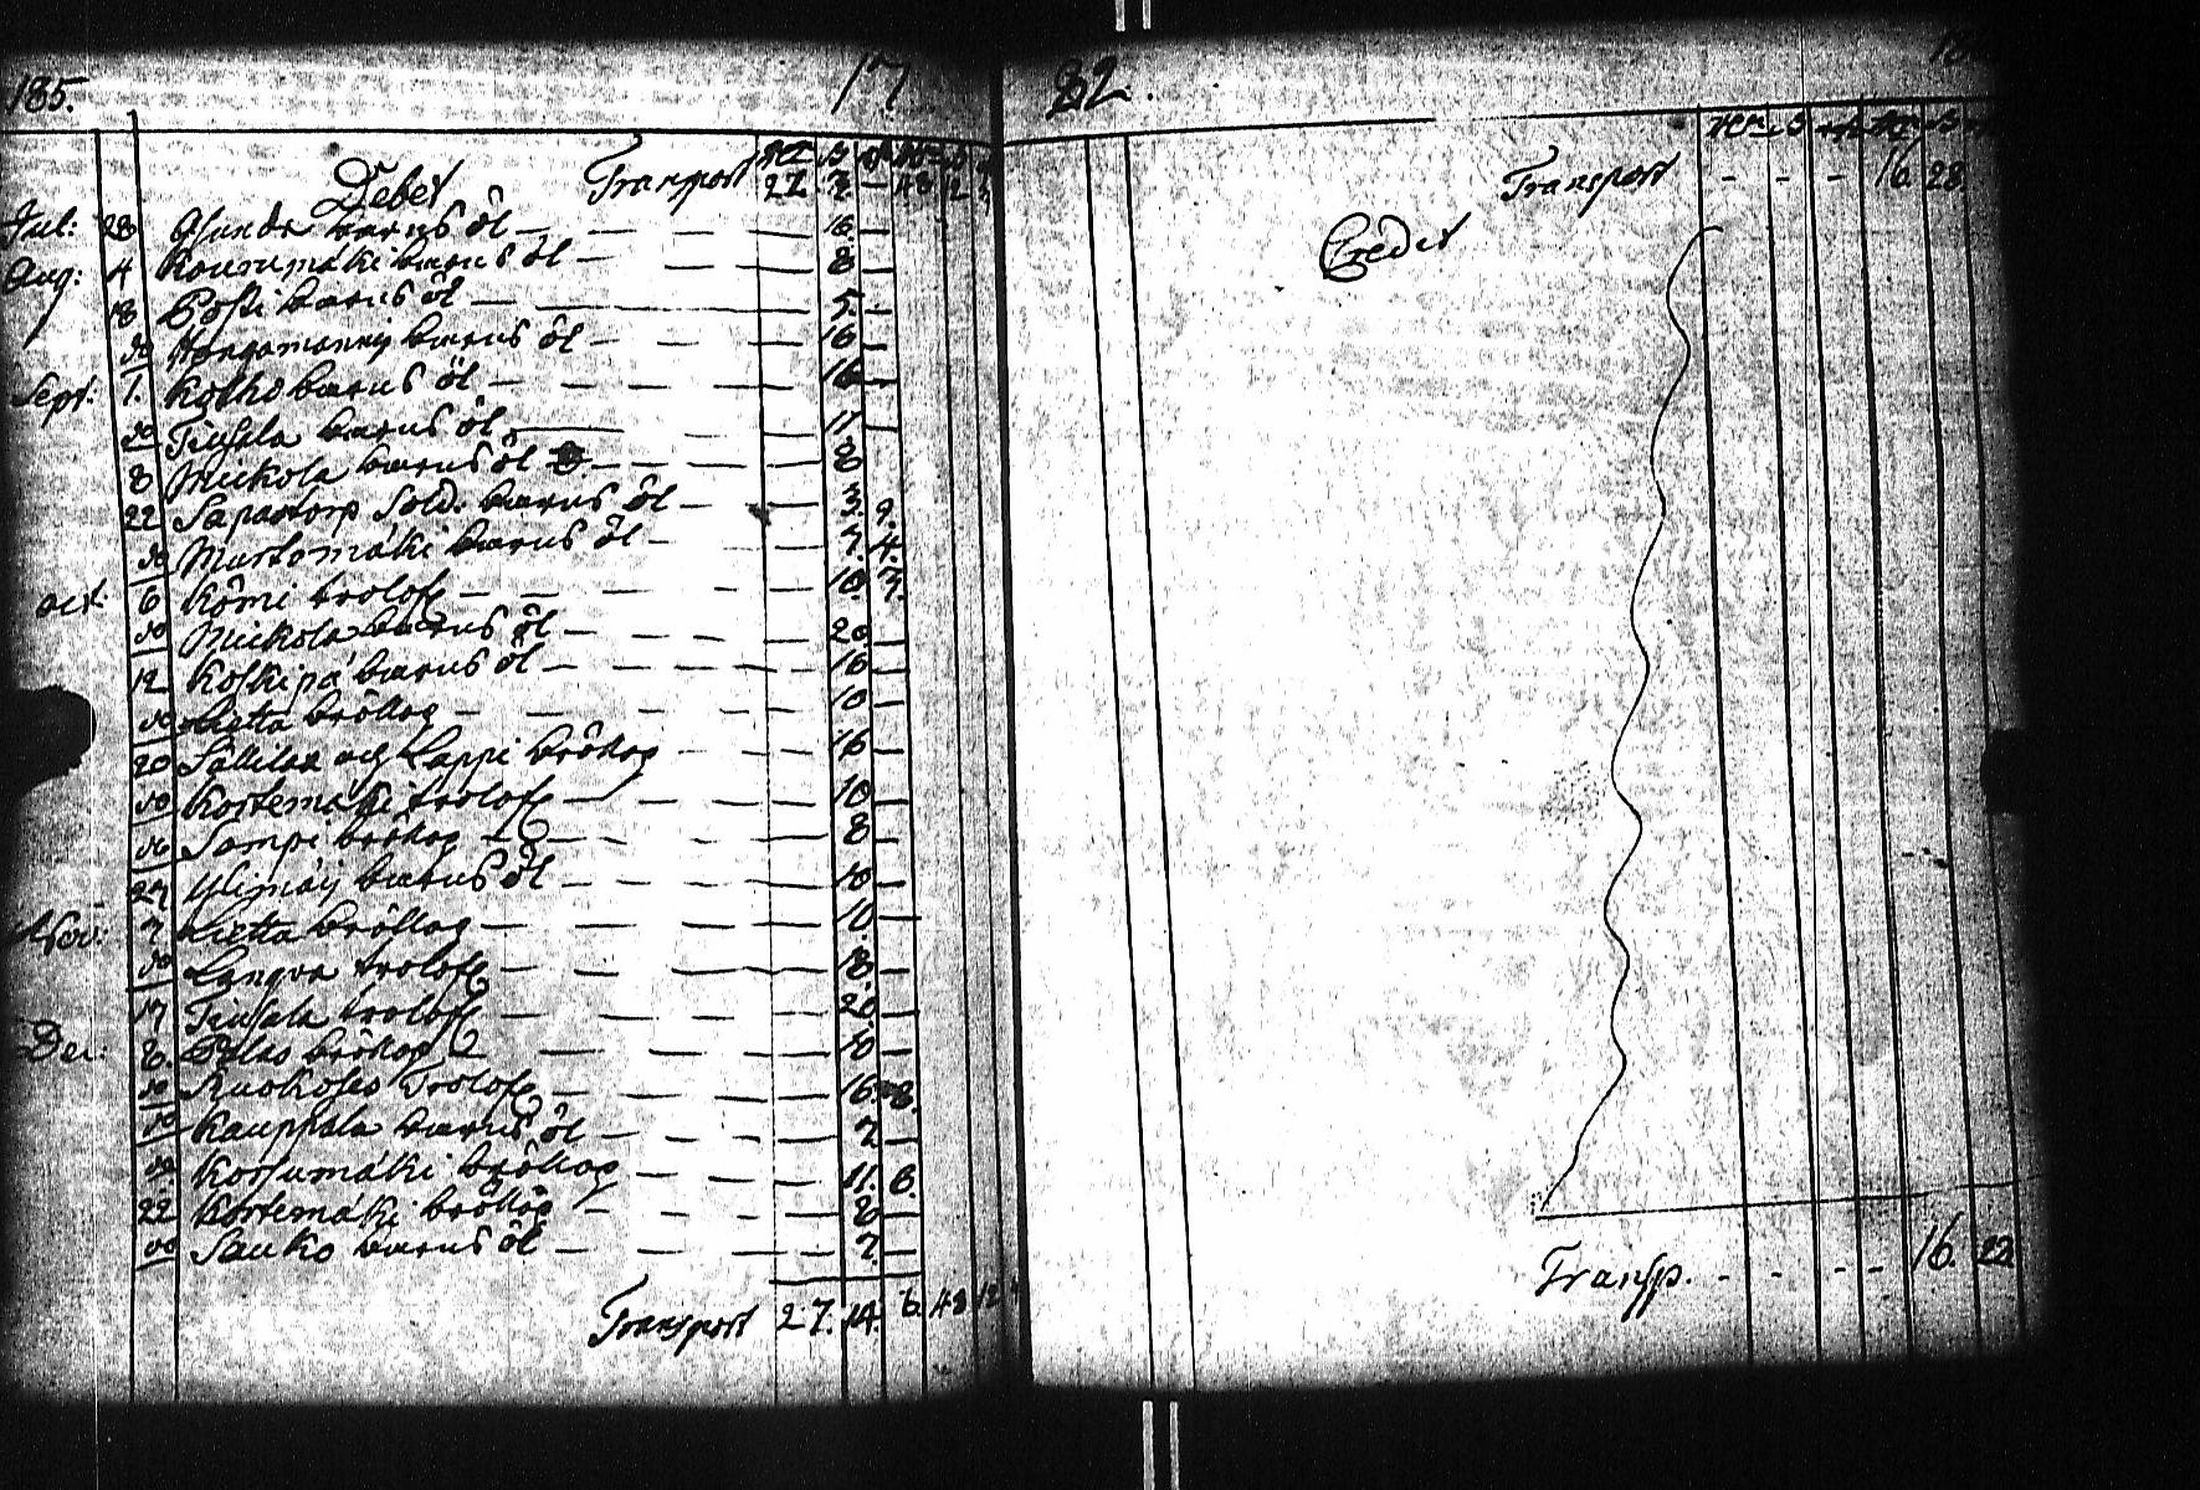 185. 17
Debet Transport 22 3 — 48 12 3
Jul: 28 Asunda barns öl — — — — 16. —
Aug: 4 Kourumäki barns öl — — — 8 —
18 Posti barns öl — — 5. —
do Hongamanny barns öl — — — 16 —
Sept: 1. Kotho barns öl — — — — 16 —
do Tiusala barns öl — — — 17 —
8 Mickola barns öl — — — 8
22 Sapastorp Sold. barns öl — — 3. 9.
do Mustamäki barns öl — — — 7. 4.
oct: 6 Kömi trolofg — — — — 10. 3.
do Mickola barns öl — — — — 20 —
12 Koskipä barns öl — — — — 16 —
do Lietta bröllog — — — — 10 —
20 Sällilax och Lappi bröllog — — 16 —
do Kortemäki trolofg — — — — 10 —
do Sampi bröllog — — — — 8 —
27 Ylimäy barns öl — — — — 10 —
Nov: 7 Lietta bröllog — — — — 10. —
do Langva trolofg — — — — 8. —
17 Tiusala trolofg — — — — 20. —
Dec: 8. Palko bröllog — — — — 10 —
do Ruokoses Trolofg — — — — 16. 8.
do Kauppala barns öl — — — — 7 —
do Korsumäki bröllog — — — 11. 6.
22 Kortemäki bröllog — — — — 8 —
do Sauko barns öl — — — — 7. —
Transport 27. 14. 6. 48 12
82.
Transport - - - 16. 28.
Credit
Transp. - - - - 16. 22.